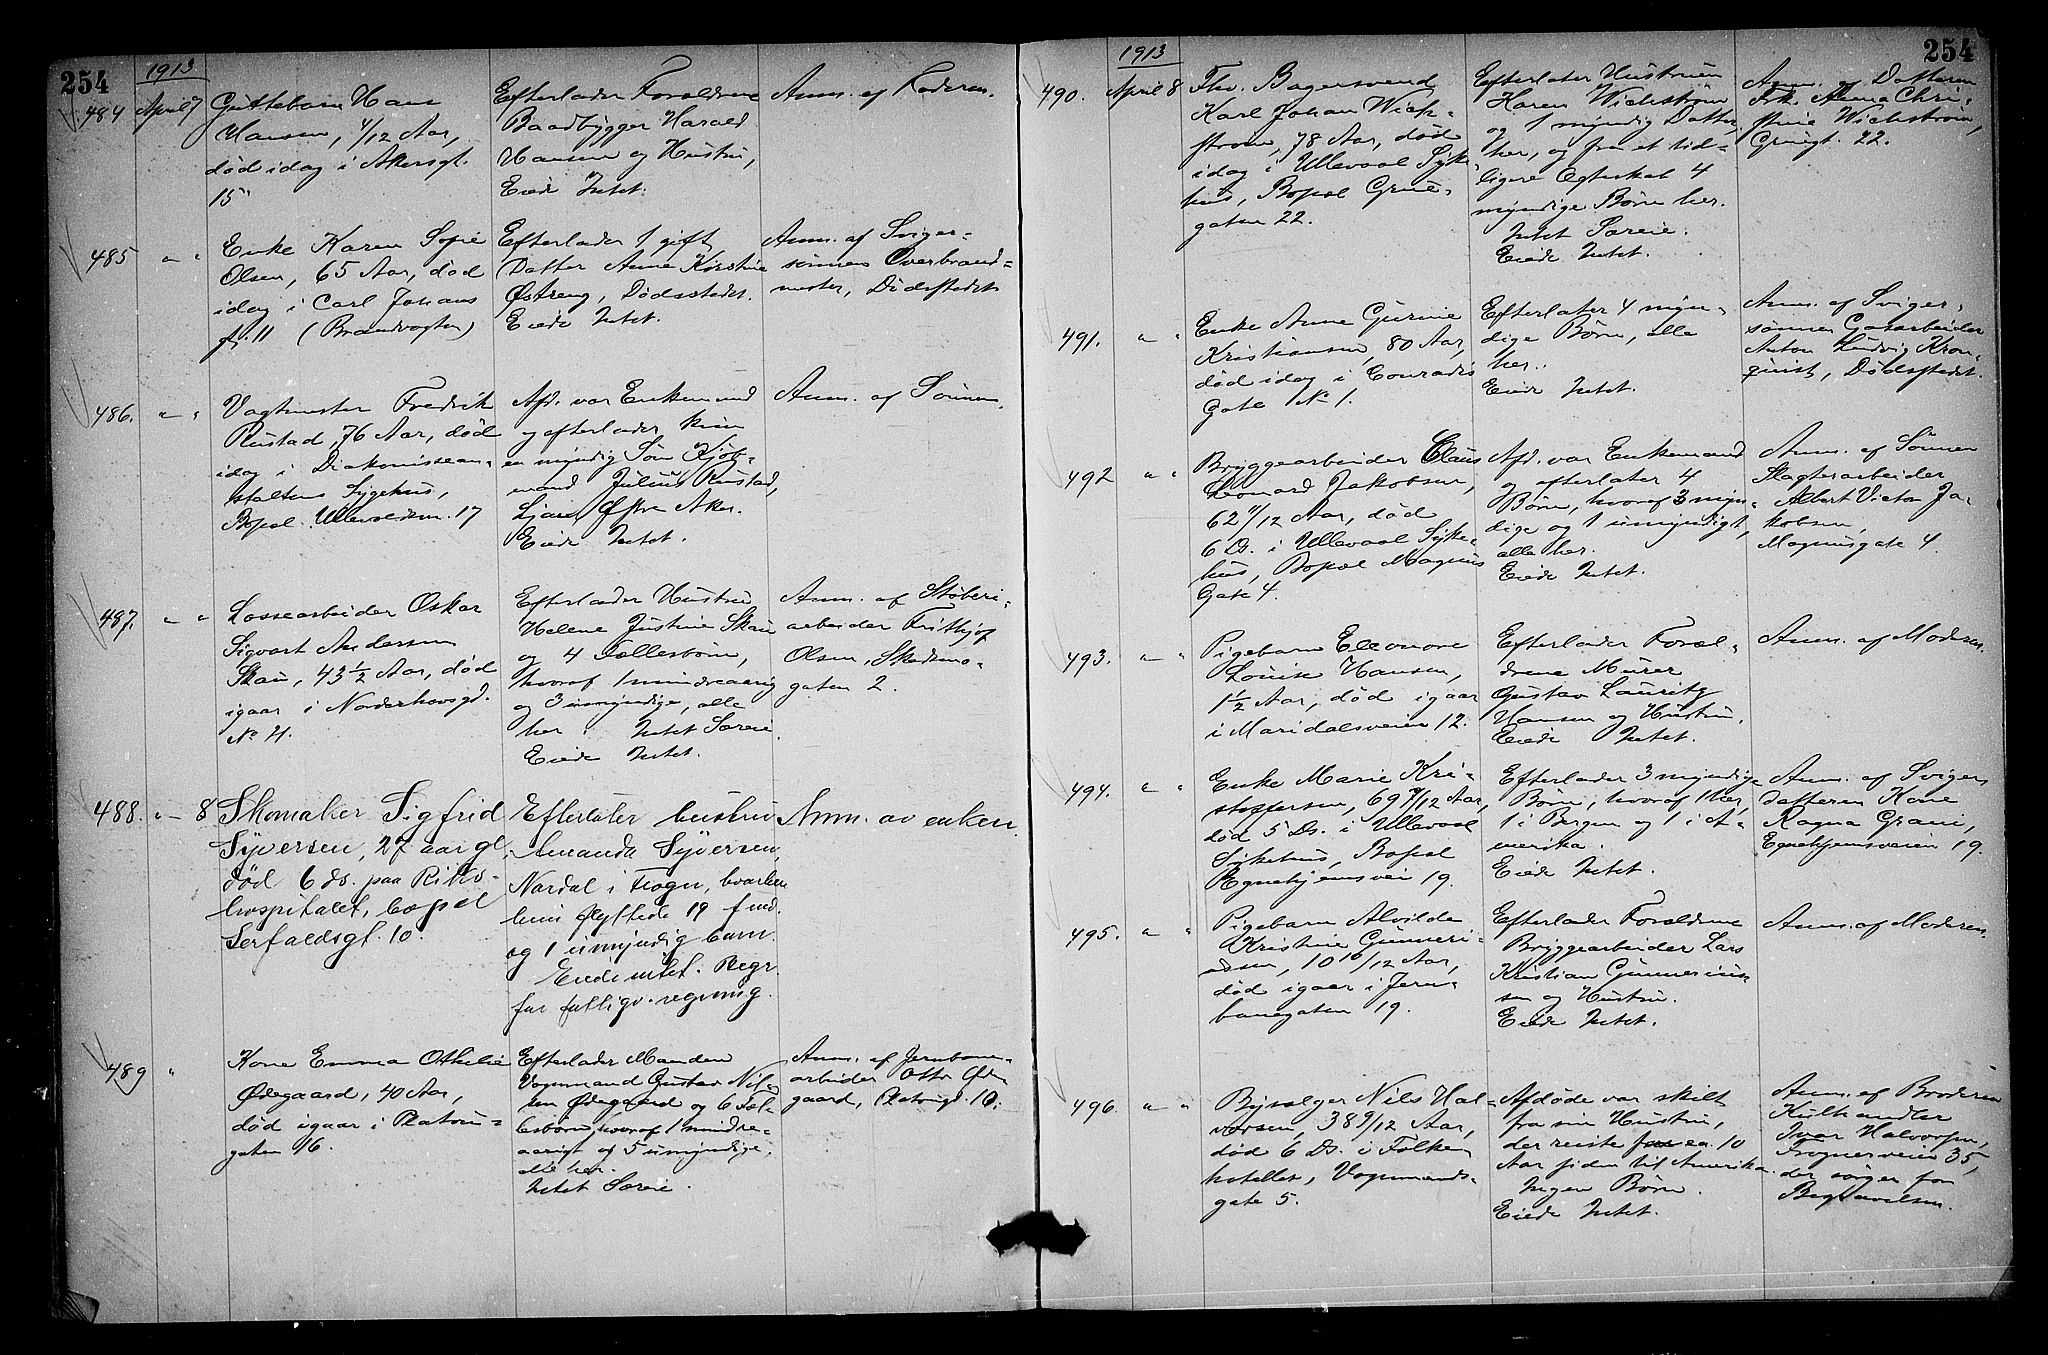 254
1913
484
April 7
Guttebarn Hans
Hansen, 4/12 Aar,
død idag i Akersgt.
15
Efterlader Forældrene
Baadbygger Harald
Hansen og Hustru,
Eiede Intet.
Anm. af Faderen.
485
" "
Enke Karen Sofie
Olsen, 65 Aar, død
idag i Carl Johans
gt. 11 (Brandvagten)
Efterlader 1 gift
Datter Anne Kirstine
Østreng, Dødsstedet.
Eiede Intet.
Anm. af Sviger-
sønnen Overbrand-
mester, Dødsstedet
486.
" "
Vagtmester Fredrik
Rustad, 76 Aar, død
idag i Diakonissean-
staltens Sygehus,
Bopæl Ullevoldsvn. 17
Afd. var Enkemand
og efterlader kun
en myndig Søn Kjøb-
mand Julius Rustad,
Ljan Østre Aker.
Eiede Intet.
Anm. af Sønnen.
487.
" "
Lossearbeider Oskar
Sigvart Andersen
Skau, 43 1/2 Aar, død
igaar i Norderhovsgd.
No 4.
Efterlader Hustru
Helene Justine Skau
og 4 Fællesbørn,
hvoraf 1 mindreaarig
og 3 umyndige, alle
her. Intet Særeie.
Eiede Intet.
Anm. af Støberi-
arbeider Frithjof
Olsen, Skedsmo-
gaten 2.
488.
" - 8
Skomaker Sigfrid
Syversen, 27 aar gl.
død 6 ds. paa Riks-
hospitalet, bopæl
Herfoldsgt. 10.
Efterlater hustru
Amanda Syversen,
Nardal i Sogn, hvorhen
hun flyttede 19 f. md.
og 1 umyndig barn.
Eiede intet. Begr.
for fattigv. regning.
Anm. av enken.
489
"
Kone Emma Othilie
Ødegaard, 40 Aar,
død igaar i Platous-
gaten 16.
Efterlader Manden
Vognmand Gustav Nil-
sen Ødegaard og 6 Fæl-
lesbørn, hvoraf 1 mindre-
aarigt og 5 umyndige,
alle her.
Intet Særeie.
Anm. af Jernbane-
arbeider Otto Øde-
gaard, Platousgt. 16.
254
1913
490.
April 8
Fhv. Bagersvend
Karl Johan Wich-
strøm, 78 Aar, død
idag i Ullevaal Syke-
hus, Bopæl Grüne-
gaten 22.
Efterlater Hustruen
Karen Wichstrøm
og 1 myndig Datter,
her, og fra et tid-
ligere Ægteskab 4
myndige Børn her.
Intet Særeie.
Eiede Intet.
Anm. af Datteren
Frk. Anna Chri-
stine Wichstrøm,
Grünegt. 22.
491.
" "
Enke Anne Gurine
Kristiansen, 80 Aar,
død idag i Conradis
Gate No 1.
Efterlater 4 myn-
dige Børn, alle
her.
Eiede Intet.
Anm. af Sviger-
sønnen Gasarbeider
Anton Ludvig Kron-
quist, Dødsstedet.
492
" "
Bryggearbeider Claus
Leonard Jakobsen,
62 11/12 Aar, død
6 Ds. i Ullevaal Syke-
hus, Bopæl Magnus
Gate 4.
Afd. var Enkemand
og efterlater 4
Børn, hvoraf 3 myn-
dige og 1 umyndigt,
alle her.
Eiede Intet.
Anm. af Sønnen
Slagterarbeider
Albert Victor Ja-
kobsen,
Magnusgate 4.
493.
" "
Pigebarn Eleonore
Louise Hansen,
1 1/2 Aar, død igaar
i Maridalsveien 12.
Efterlader Foræl-
drene Murer
Gustav Lauritz
Hansen og Hustru.
Eiede Intet.
Anm. af Moderen.
494.
" "
Enke Marie Kri-
stoffersen, 69 9/12 Aar,
død 5 Ds. i Ullevaal
Sykehus, Bopæl
Egnehjemsvei 19.
Efterlader 3 myndige
Børn, hvoraf 1 her,
1 i Bergen og 1 i A-
merika.
Eiede Intet.
Anm. af Sviger-
datteren Kone
Ragna Grani,
Egnehjemsveien 19.
495.
" "
Pigebarn Alvilde
Kristine Gunneri-
ussen, 10 10/12 Aar,
død igaar i Jern-
banegaten 19.
Efterlader Forældrene
Bryggearbeider Lars
Kristian Gunnerius-
sen og Hustru.
Eiede Intet.
Anm. af Moderen.
496.
" "
Bysælger Nils Hal-
vorsen 38 9/12 Aar,
død 6 Ds. i Folke-
hotellet, Vognmands-
gate 5.
Afdøde var skilt
fra sin Hustru,
der reiste for ca. 10
Aar siden til Amerika.
Ingen Børn.
Eiede Intet.
Anm. af Broderen
Kulhandler
Ivar Halvorsen,
Frognerveien 35,
der sørger for
Begravelsen.